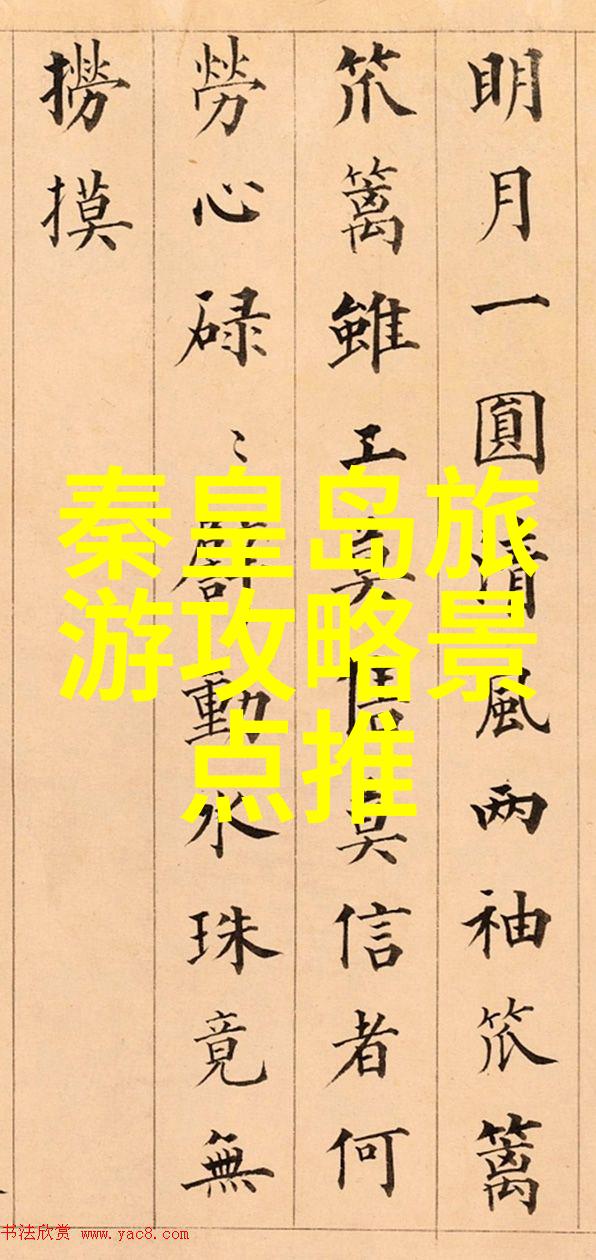 明月一圓清風两袖笊篱
笊篱雖工莫莫信者何
勞心碌〻動水珠竟無
撈摸
秦皇岛旅
游攻略景
点推
书法欣赏 www.yac8.com